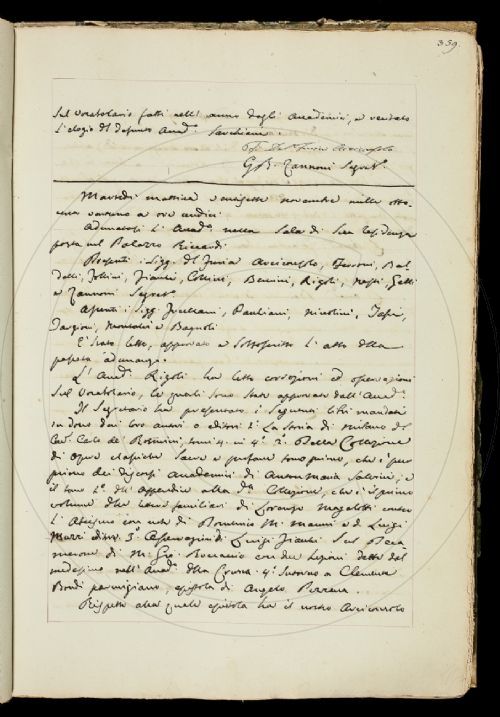 359.
sul Vocabolario fatti nell' anno dagli Accademici, e recitato
l'elogio del defunto Accad.
G. B. Zannoni Segret.
Martedì mattina ventisette novembre mille otto-
cento ventuno a ore undici
Adunatasi l' Accad. nella Sala di Sua residenza
posta nel Palazzo Riccardi
Presenti i Sigg. Del Furia Arciconsolo, Ferroni, Bal-
delli, Follini, Fiacchi, Collini, Bencini, Rigoli, Nesti, Gatti
e Zannoni Segret.
Assenti i Sigg. Pauliani, Niccolini,
Targioni, e Bagnoli
È stato letto, approvato e sottoscritto l' atto della
passata adunanza.
L' Accad. Rigoli ha letto correzioni ed osservazioni
sul Vocabolario, le quali sono state approvate dall' Accad.
Il Segretario ha presentato i seguenti libri mandati
in dono dai loro autori o editori 1. La Storia di Milano del
Cav. Carlo de' Rosmini, tomi 4 in 4. 2. Della Collezione
di Opere classiche sacre e profane tomo primo, che è pur
primo dei discorsi Accademici di Anton Maria Salvini, e
il tomo 2. dell' Appendice alla da. Collezione, che è il primo
volume delle lettere familiari di Lorenzo Magalotti contro
l' Ateismo con note di Domenico M. Manni e di Luigi
editor. 3. Osservazioni di Luigi Fiacchi sul Deca-
merone di M. Gio. Boccaccio con due lezioni dette dal
medesimo nell' Accad. della Crusca. 4. Intorno a Clemente
Bondi parmigiano, epistola di Angelo Pezzana.
Rispetto alla quale epistola ha il nostro Arciconsolo